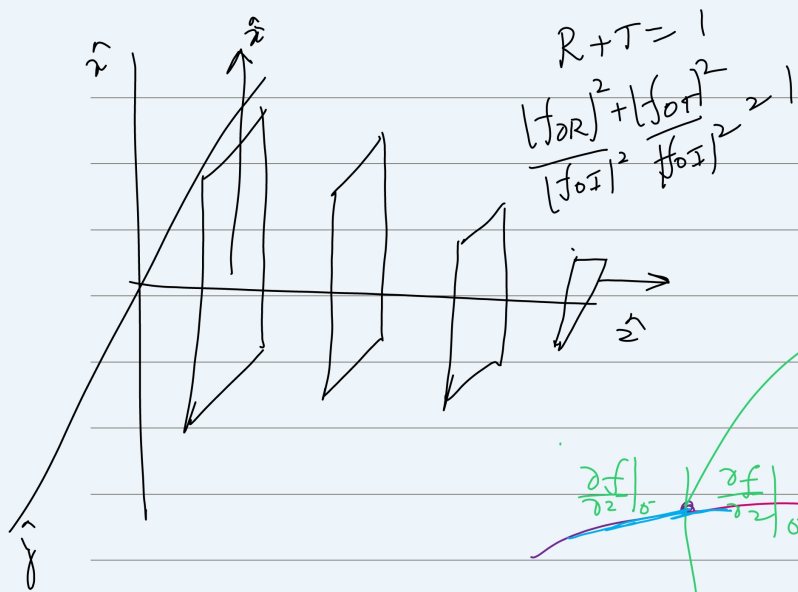 x̂
x̂
R + T = 1
|f₀R|² / |f₀I|² + |f₀T|² / |f₀I|² = 1
ẑ
ŷ
∂f/∂z|₀- ∂f/∂z|₀